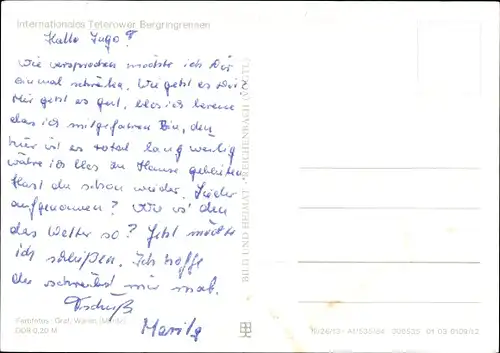 Internationales Teterower Bergringrennen
Hallo Ingo!
Wie versprochen möchte ich Dir
einmal schreiben. Wie geht es Dir?
Mir geht es gut, blos ich bereue
das ich mitgefahren bin, den
hier ist es total lang weilig
wäre ich blos zu Hause geblieben
Hast du schon wieder Lieder
aufgenommen? Wie is' den
das Wetter so? Jetzt möchte
ich schließen. Ich hoffe
du schreibst mir mal.
Tschüß
Fotos: Graf, Waren (Müritz)
DDR 0,20 M
BILD UND HEIMAT REICHENBACH (VOGTL)
01 03 0109/12